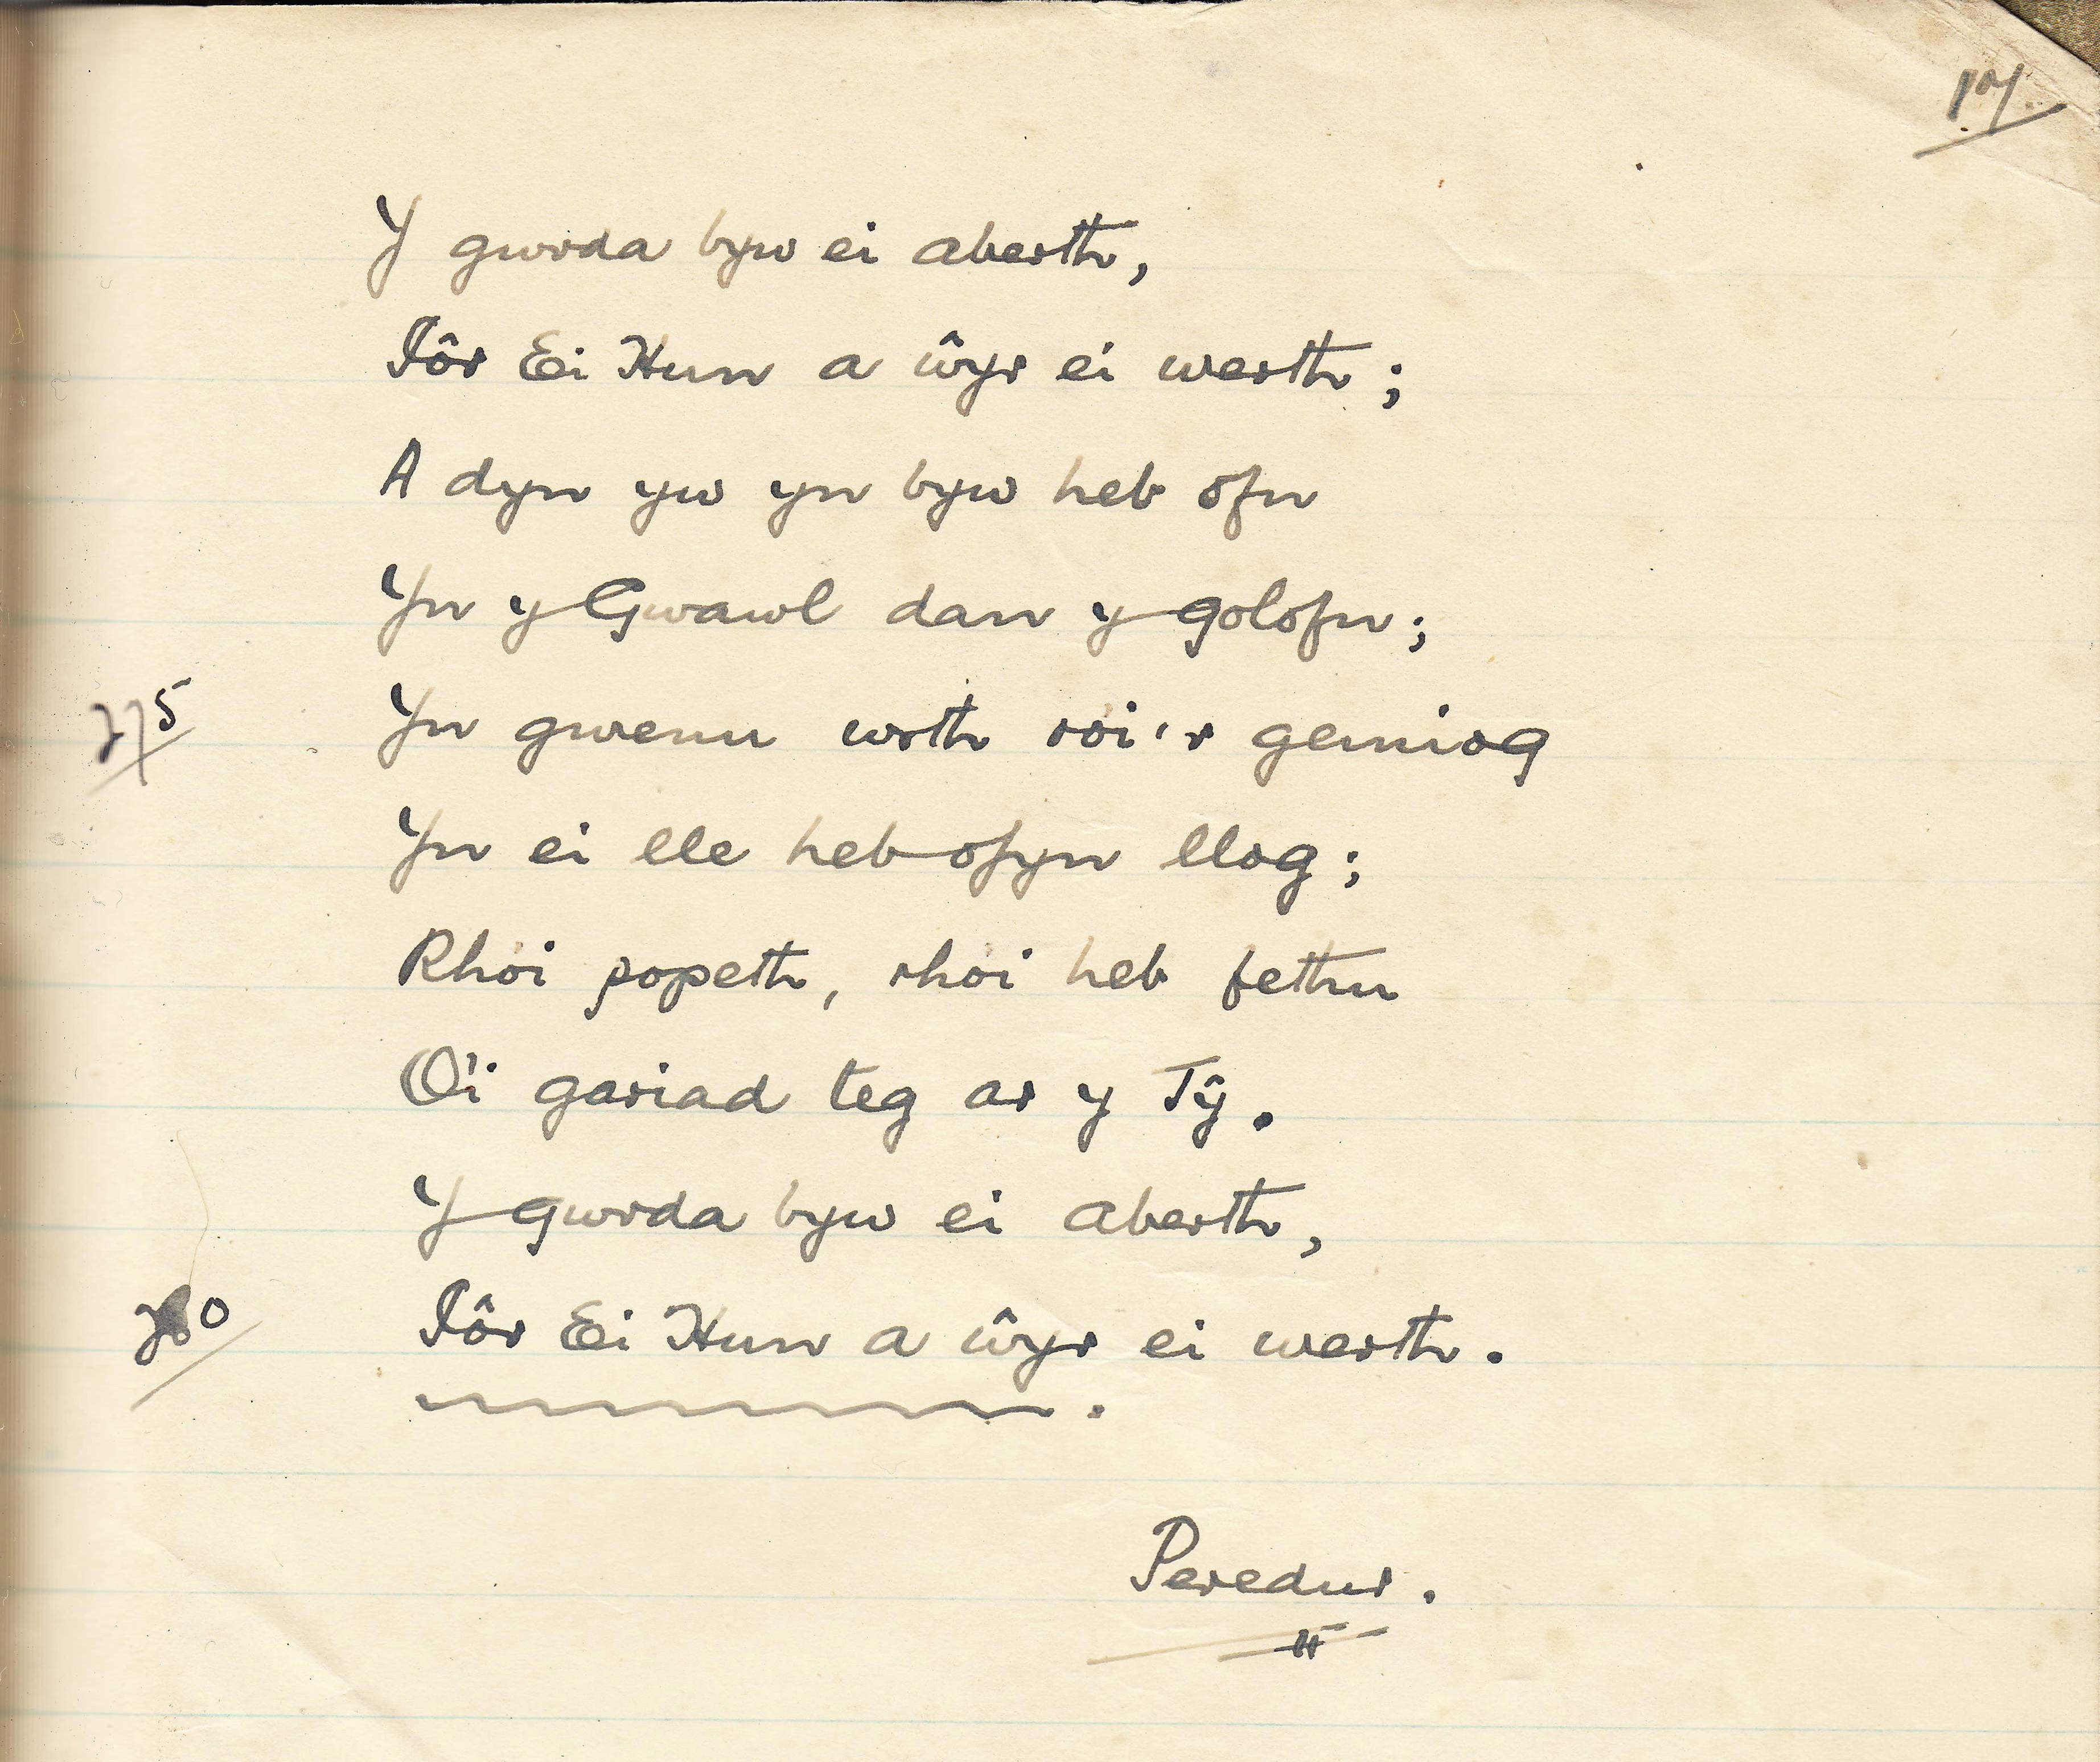 Y gwrda byw ei aberth,
Iôr Ei Hun a ŵyr ei werth;
A dyn yw yn byw heb ofn
Yn y Gwawl dan y golofn;
275
Yn gwenu wrth roi'r geiniog
Yn ei lle heb ofyn llog;
Rhoi popeth, rhoi heb fethu
O'i gariad teg ar y Tŷ.
Y gwrda byw ei aberth,
280
Iôr Ei Hun a ŵyr ei werth.
Peredur.